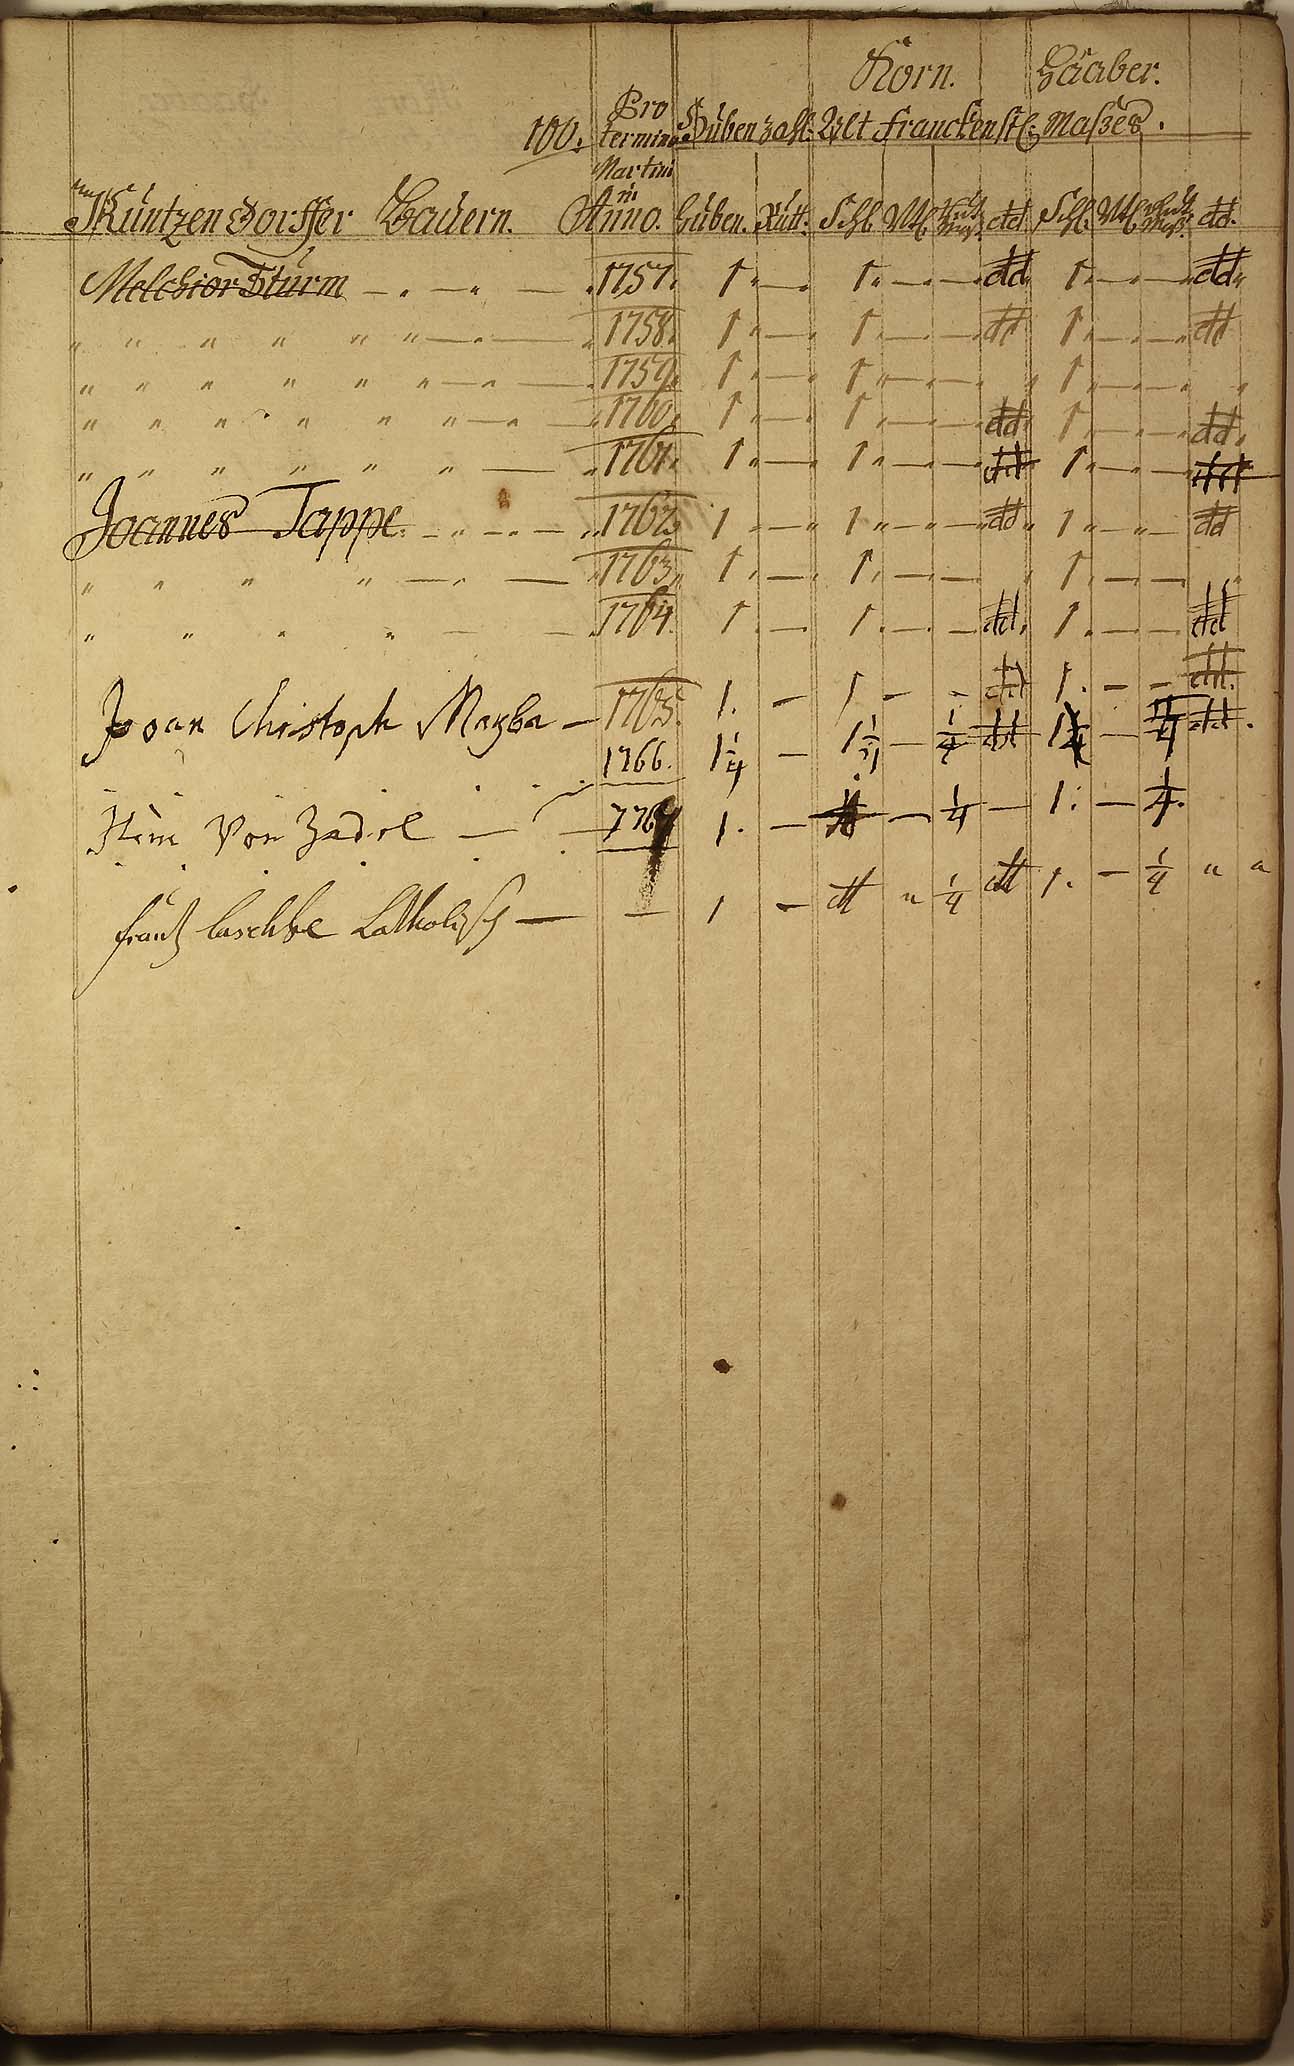 Korn. Haaber.
100. Pro termino Martini in Anno. Hubenzahl. Alt Franckenst: Maßes.
Kuntzendorffer Bauern. Huben. Rutt: Schl. Mtl dd. Schl. Mtl dd.
Melchior Sturm — . — „ — 1757. 1 „ — 1 „ — . — dd 1 „ — „ — dd „
„ „ „ „ „ „ — . — 1758. 1 „ — 1 „ — . — dd 1 „ — . — dd
„ „ „ „ „ „ — „ — 1759. 1 „ — 1 „ — . — „ 1 „ — . — „
„ „ „ „ „ „ — . — 1760. 1 „ — 1 „ — . — dd 1 „ — . — dd.
„ „ „ „ „ „ — 1761. 1 „ — 1 „ — . — dd 1 „ — . — dd
Joannes Tappe. — „ — . — 1762. 1 „ — „ 1 „ — „ — dd 1 „ — „ — dd
„ „ „ „ — . — 1763. 1 . — 1 . — — „ 1 . — — „
„ „ „ „ — — 1764. 1 . — 1 . — — dd. 1 . — — dd
Joan Christoph — 1765. 1. — 1 — - dd 1. — — dd.
1766. 1 1/4 — 1 1/4 — 1/4 dd 1 1/4 — 1/4 dd.
Von Zadel — — 1767 1. — — 1/4 — 1. — 1/4.
Frantz Catholisch — — 1 — dd „ 1/4 dd 1. — 1/4 „ „